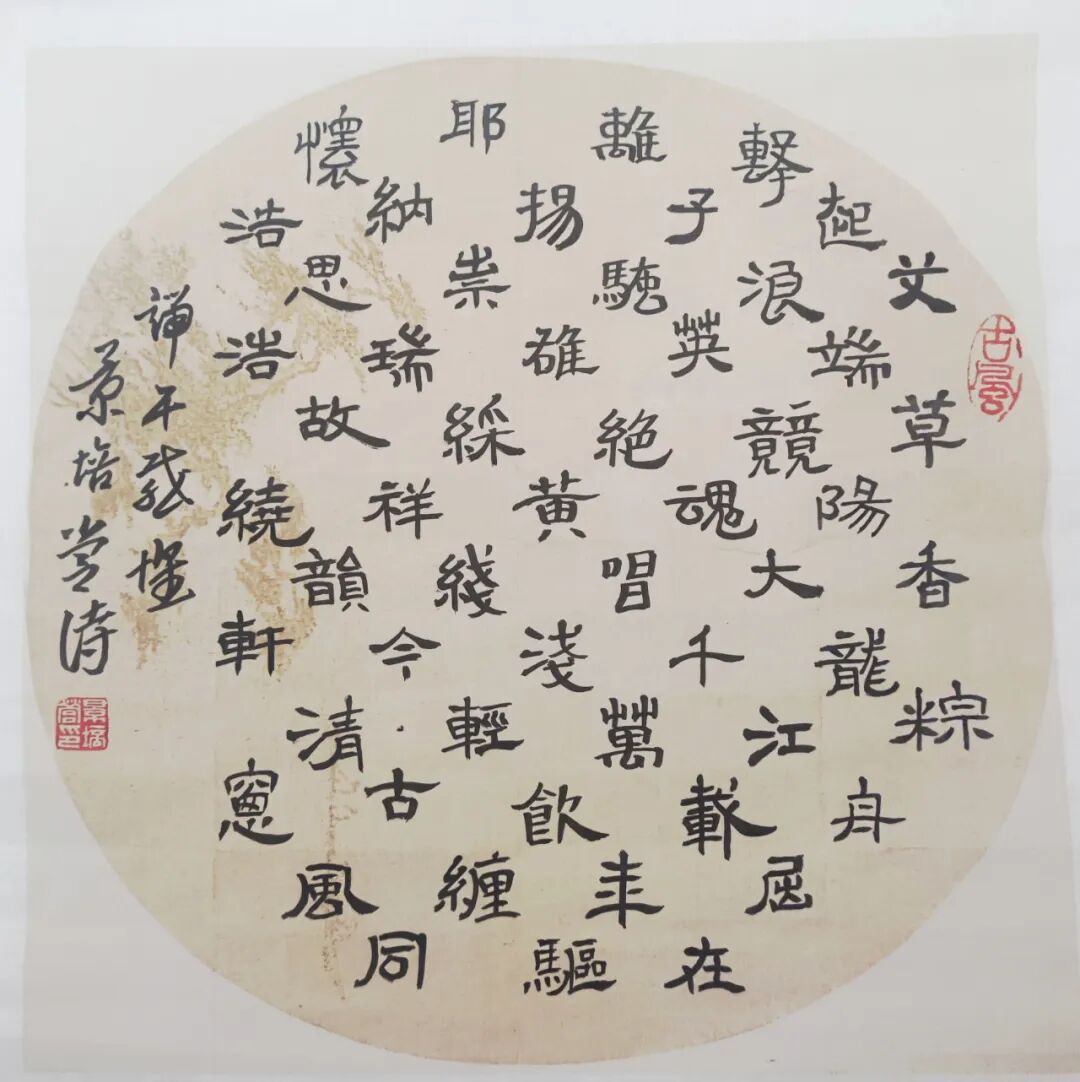 艾草香粽
起端陽龍舟
擊浪競大江屈
子英魂千載在
離騷絕唱萬年
揚雄黃淺飲驅
耶祟綵綫輕纏
納瑞祥今古同
懷思故韻清風
浩浩繞軒窻
端午感懷
景培营詩
古風